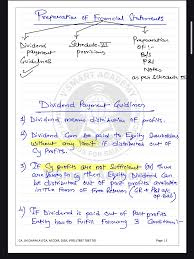 Preparation of Financial Statements
Dividend Schedule III Preparation
payment provisions of :-
Guidelines B/S
P&L
Notes
as per Schedule III
Dividend Payment Guidelines
1) Dividend means distribution of profits.
2) Dividend can be paid to Equity
without any limit if distributed out of
Cy Profits.
3) If Cy profits are not sufficient or there
are in Cy then Equity Dividend can
be distributed out of past profits available
in the form of Free Reserves (GR + P&L
4) If Dividend is paid out of past profits
Entity has to Fulfill Following 3 Conditions:-